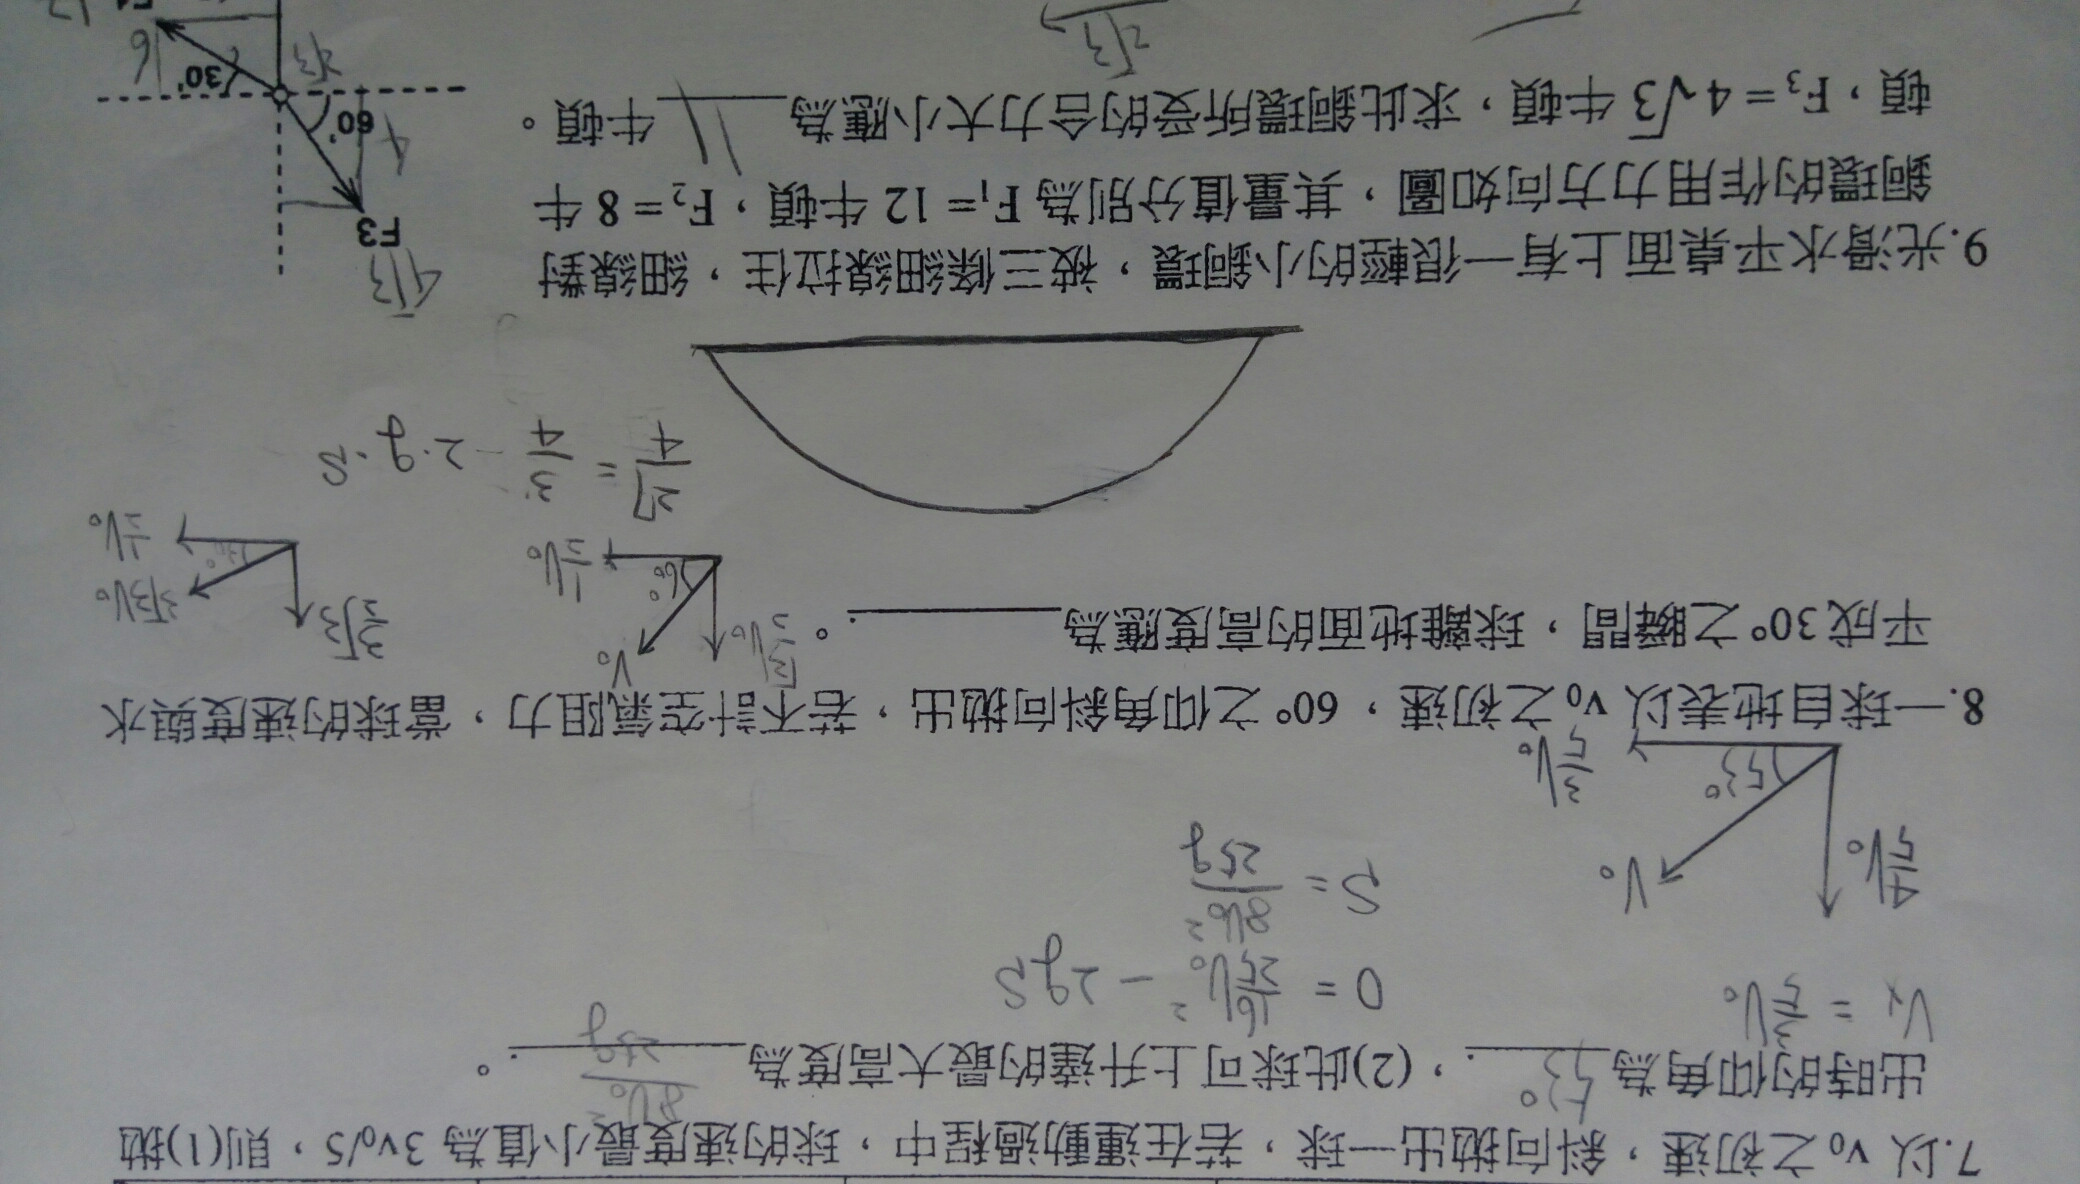 7.以 v₀ 之初速，斜向拋出一球，若在運動過程中，球的速度最小值為 3v₀/5，則(1)拋
出時的仰角為 53° ，(2)此球可上升達的最大高度為 8V₀²/25g 。
Vx = 3/5 V₀
0 = 16/25 V₀² - 2gS
S = 8V₀²/25g
4/5 V₀
V₀
53°
3/5 V₀
8.一球自地表以 v₀ 之初速，60° 之仰角斜向拋出，若不計空氣阻力，當球的速度與水
平成 30° 之瞬間，球離地面的高度應為 。
√3/2 V₀
V₀
60°
1/2 V₀
30°
1/2 V₀
27/4 = 3/4 - 2·g·S
9.光滑水平桌面上有一很輕的小銅環，被三條細線拉住，細線對
銅環的作用力方向如圖，其量值分別為 F₁= 12 牛頓，F₂= 8 牛
頓，F₃= 4√3 牛頓，求此銅環所受的合力大小應為 牛頓。
4√3
F3
60°
4
30°
6
2√3
2√3